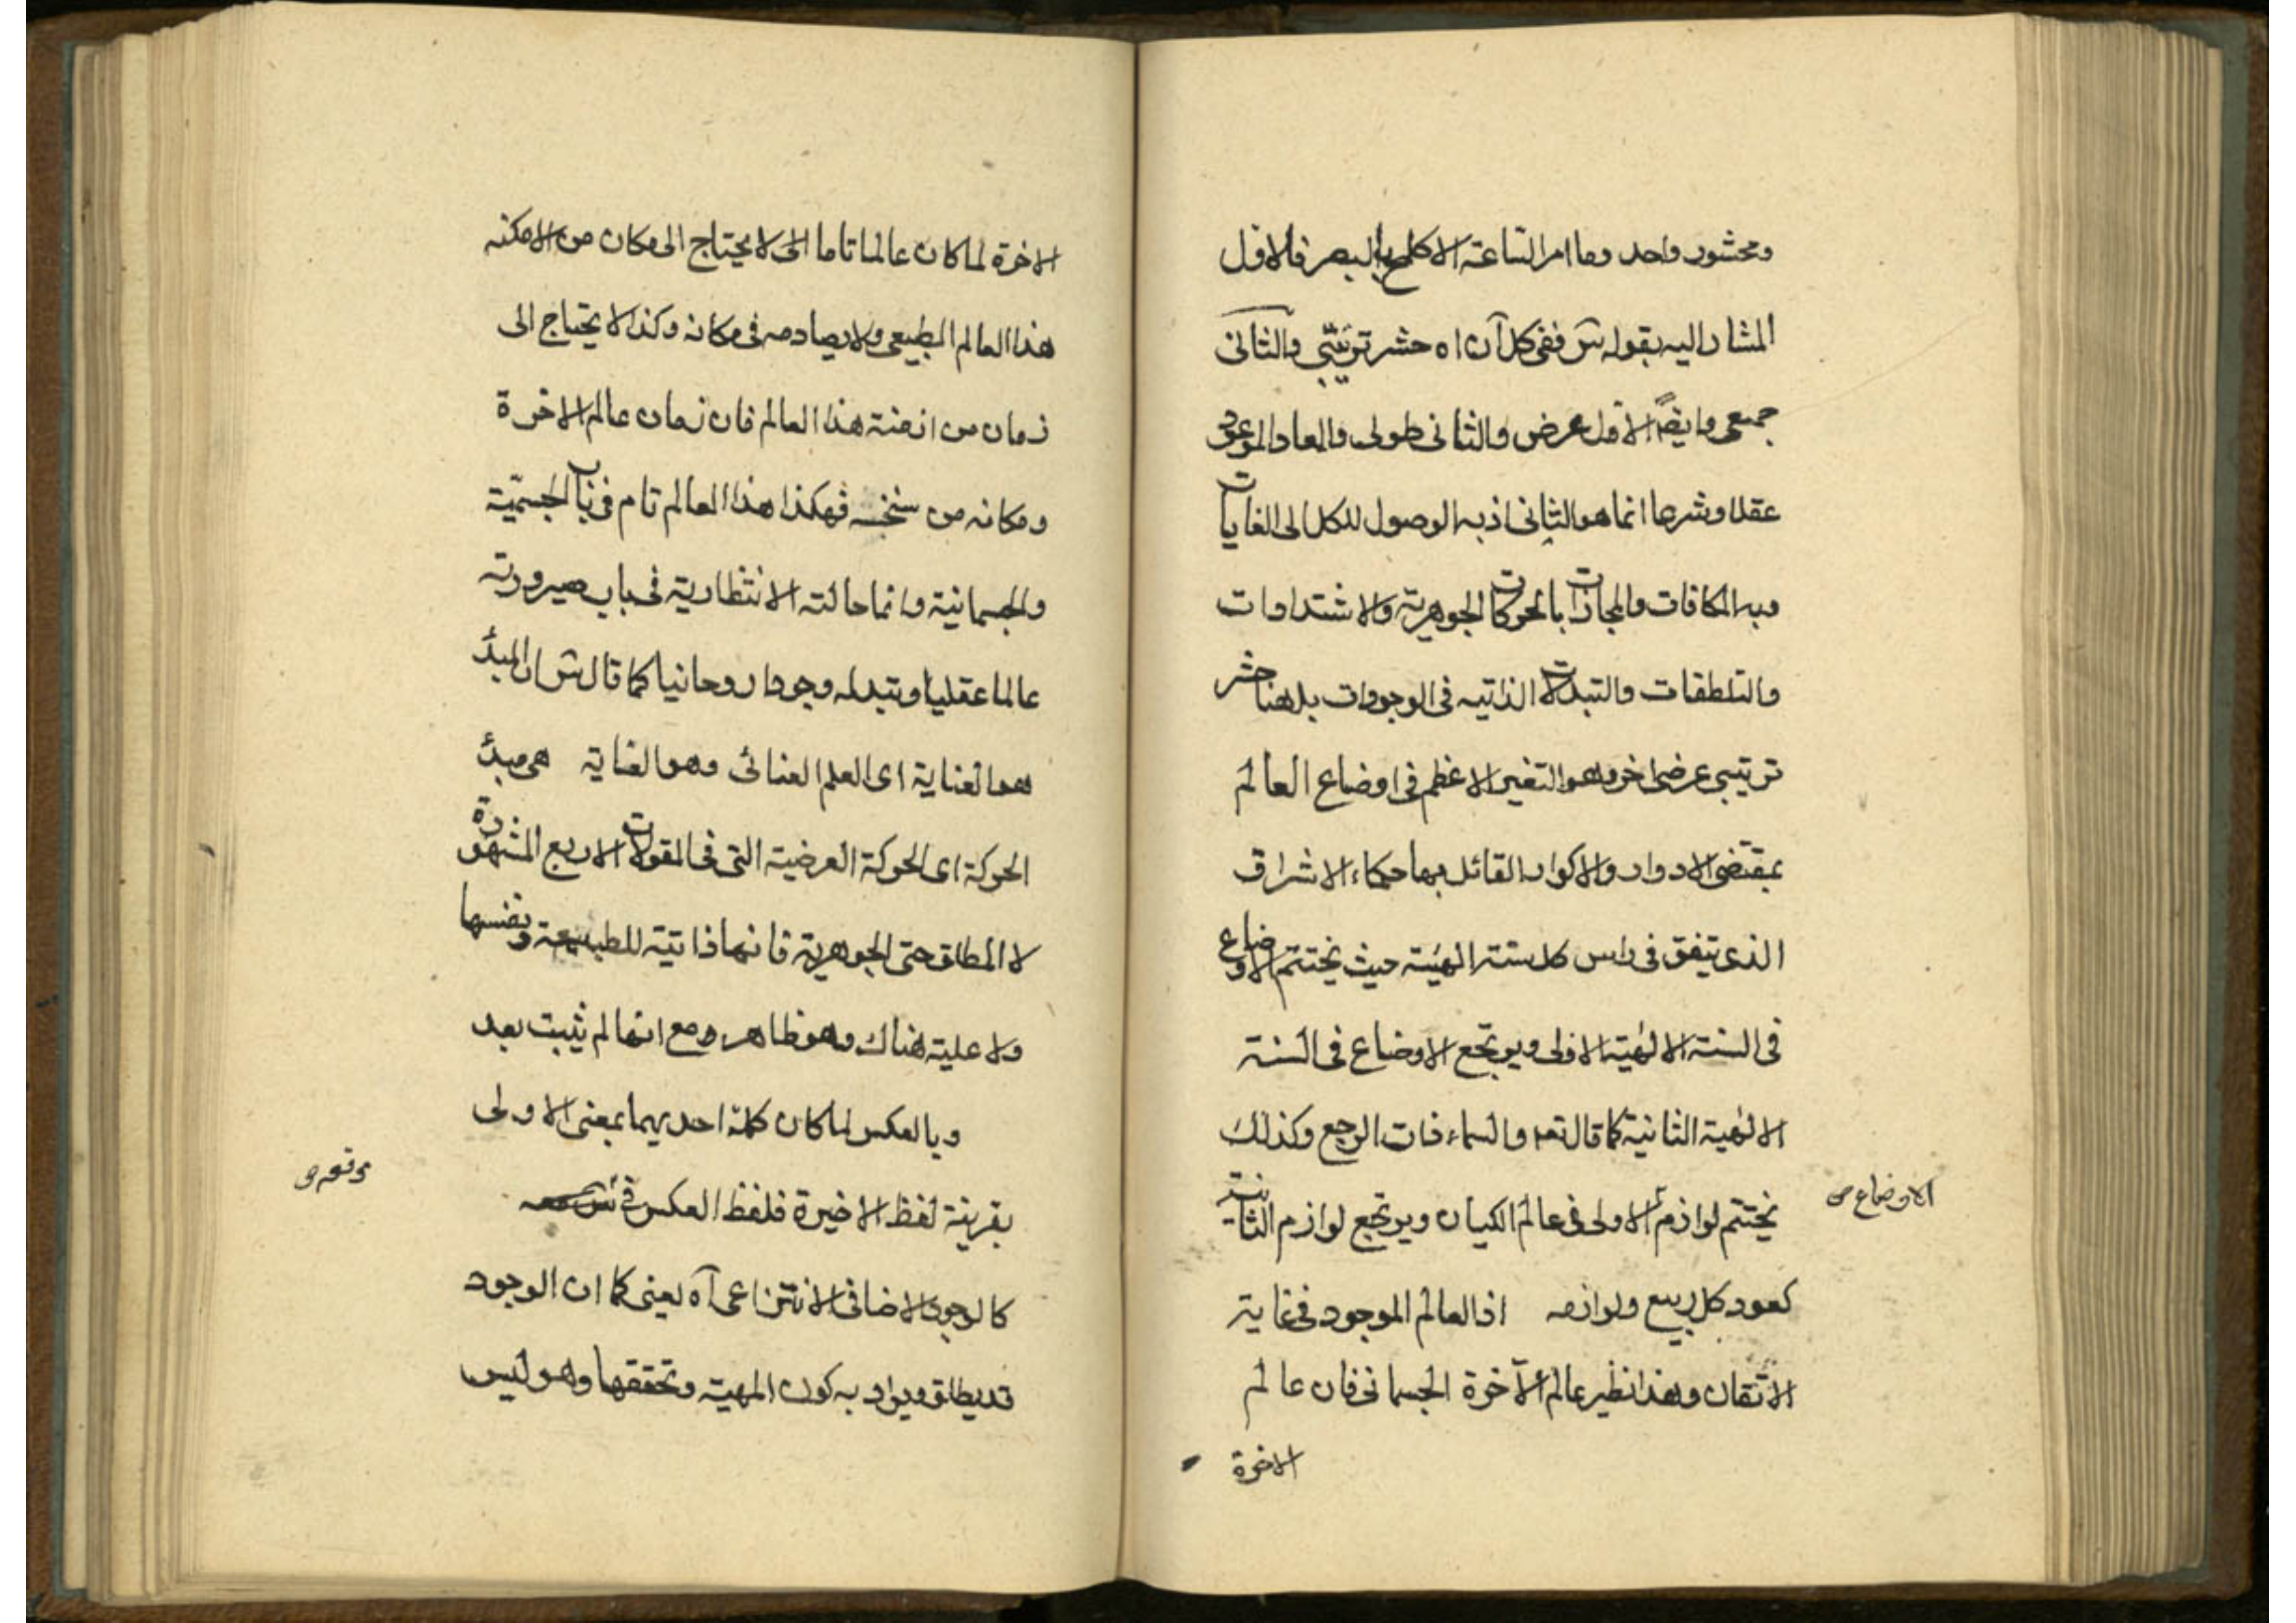 ومحشور واحد وما امر الساعة الا كلمح بالبصر فالاول
المشار اليه بقوله س ففى كل آن اه حشر ترتيبى والثانى
جمعى وايضاً الاول عرض والثانى طولى والمعاد الموعود
عقلا وشرعا انما هو الثانى اذ به الوصول للكل الى الغايات
وبه المكافات والمجازات بالحركات الجوهرية والاشتدادات
والتلطفات والتبدلات الذاتيه فى الوجودات بل هنا حشر
ترتيبى عرضى اخر وهو التغير الاعظم فى اوضاع العالم
بمقتضى الادوار والاكوار القائل بها حكماء الاشراق
الذى يتفق فى راس كل سنة الهية حيث يختتم الاوضاع
فى السنة الالهية الاولى ويرتجع الاوضاع فى السنة
الالهية الثانية كما قال تعه والسماء ذات الرجع وكذلك
يختتم لوازم الاولى فى عالم الكيان ويرتجع لوازم الثانية
الاوضاع ص
كعود كل ربيع ولوازمه اذ العالم الموجود فى غاية
الاتقان وهذا نظير عالم الآخرة الجسمانى فان عالم
الاخرة
الاخرة لما كان عالما تاما الى لا يحتاج الى مكان من الامكنه
هذا العالم الطبيعى ولا يصادمه فى مكانه وكذا لا يحتاج الى
زمان من ازمنة هذا العالم فان زمان عالم الاخرة
ومكانه من سنخه فهكذا هذا العالم تام فى باب الجسمية
والجسمانية وانما حالته الانتظارية فى باب صيرورته
عالما عقليا وتبدله وجودا روحانيا كما قال س ان المبدأ
هو العناية اى العلم العنائى وهو الغاية هى مبدأ
الحركة اى الحركة العرضية التى فى المقولات الاربع المشهورة
لا المطلق حتى الجوهرية فانها ذاتية للطبيعة ونفسها
ولا علية هناك وهو ظاهر ومع انها لم يثبت بعد
وبالعكس لما كان كلمة احديهما بمعنى الاولى
بقرينة لفظ الاخيرة فلفظ العكس فى
كالوجود الاضافى الانتزاعى آه يعنى كما ان الوجود
قد يطلق ويراد به كون المهية وتحققها وهو ليس